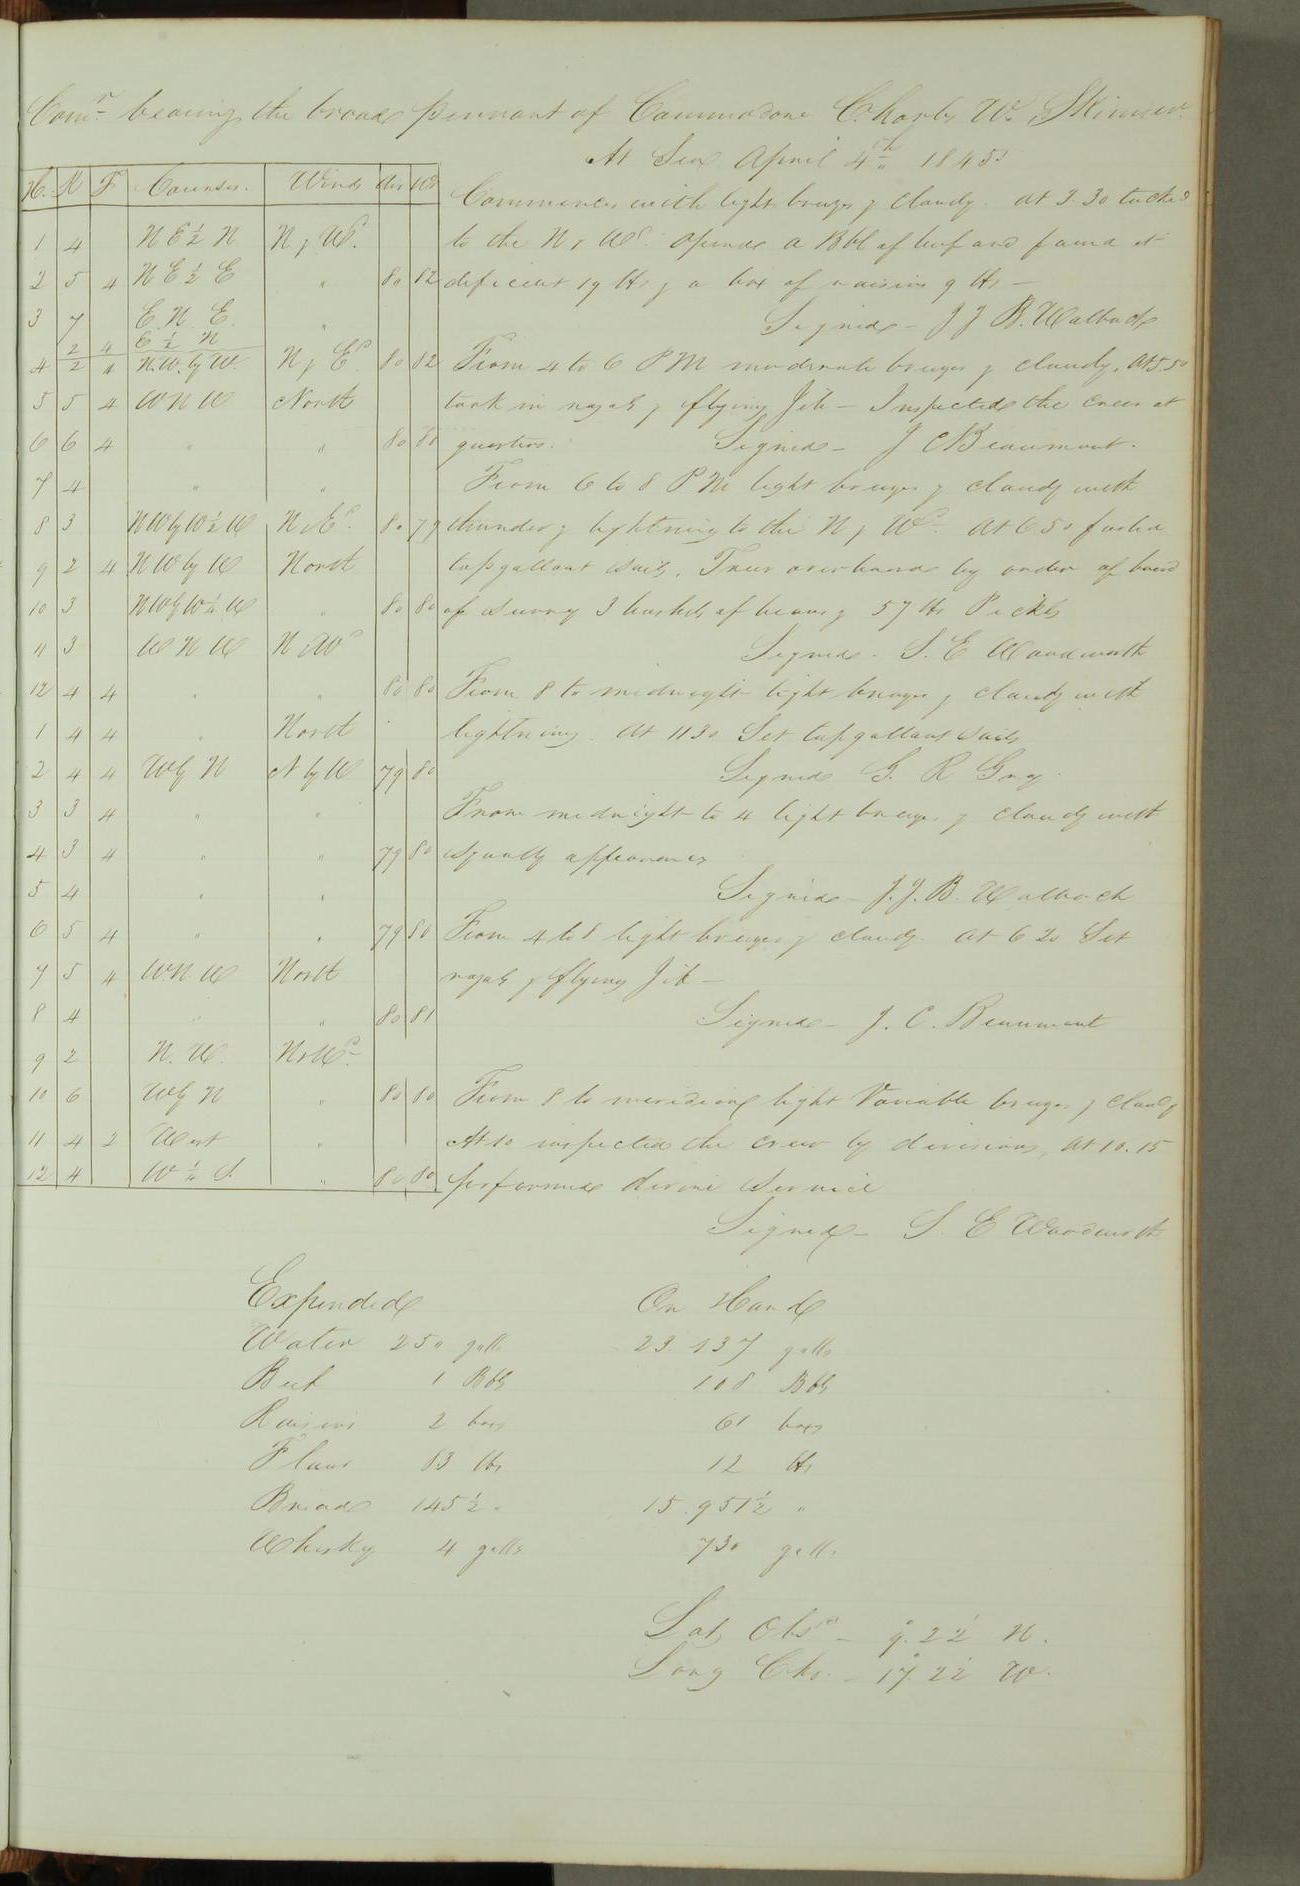 Comr bearing the broad pennant of Commodore Charles Wm Skinner
At Sea April 4th 1845
H. K F Courses. Winds Air Wr
Commences with light breezes & cloudy. at 3.30 tacked
1 4 N E ½ N N & Wd. to the N & Wd. Opened a Bbl of beef and found it
2 5 4 N E ½ E " 80 82 deficient 19 lbs & a box of raisins 9 lbs —
3 7 E. N. E. " Signed — J J B. Walbach
2 4 E ½ N
4 2 4 N.W. by W. N & Ed. 80 82 From 4 to 6 P M moderate breezes & cloudy. At 5.50
5 5 4 W N W North took in royals & flying Jib — Inspected the crew at
6 6 4 " " 80 80 quarters. Signed — J C Beaumont.
7 4 " " From 6 to 8 P M light breezes & cloudy with
8 3 N W by W ½ W N & Ed. 80 79 thunder & lightning to the N & Wd. At 6 50 furled
9 2 4 N W by W North topgallant sails. Threw overboard by order of board
10 3 N W by W ½ W " 80 80 of survey 3 bushels of beans & 57 lbs Pickles
11 3 W N W N & Wd Signed — S. E Woodworth
12 4 4 " " 80 80 From 8 to midnight light breezes & cloudy with
1 4 4 " North lightning. At 11 30 Set topgallant sails
2 4 4 W by N N by W 79 80 Signed G. R Gray.
3 3 4 " " From midnight to 4 light breezes & cloudy with
4 3 4 " " 79 80 squally appearances
5 4 " " Signed — J. J. B. Walbach
6 5 4 " " 79 80 From 4 to 8 light breezes & cloudy. at 6 20 Set
7 5 4 W.N.W North royals & flying Jib —
8 4 " " 80 81 Signed — J. C. Beaumont
9 2 N. W. N & Wd.
10 6 W by N " 80 80 From 8 to meridian light Variable breezes & cloudy
11 4 2 West " At 10 inspected the crew by divisions, at 10.15
12 4 W ½ S. " 80 80 performed divine service
Signed — S. E Woodworth
Expended On Hand
Water 250 galls 23.137 galls
Beef 1 Bbls 108 Bbls
Raisins 2 boxes 61 boxes
Flour 83 lbs 12 lbs
Bread 145½ " 15.951½ "
Whisky 4 galls 730 galls
Lat Obsd — 9°. 22' N.
Long Chr. — 17°. 22' W.